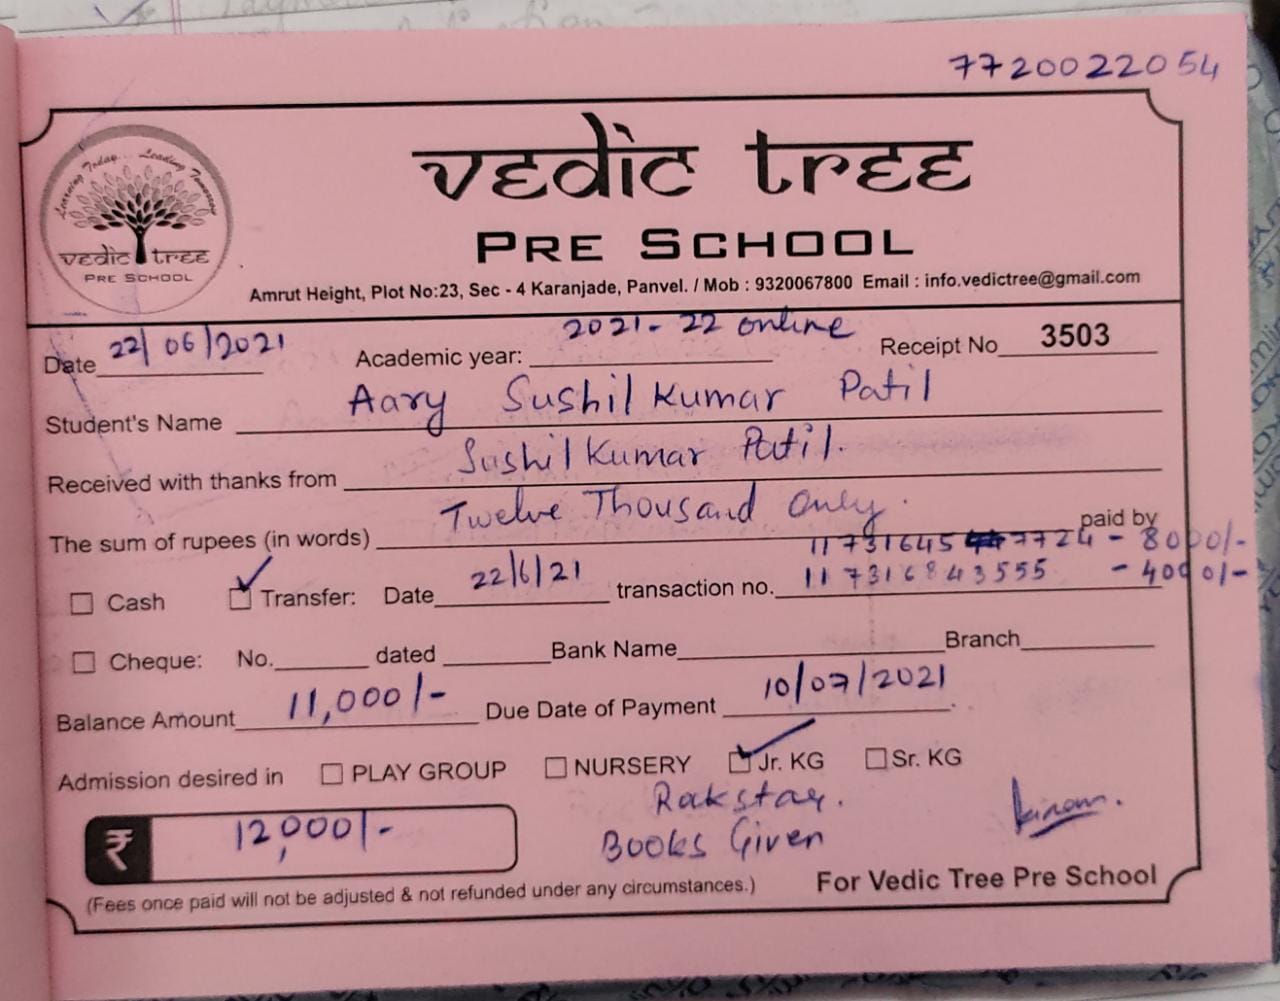 7720022054
Learning Today... Leading Tomorrow
vedic tree
PRE SCHOOL
vedic tree
PRE SCHOOL
Amrut Height, Plot No:23, Sec - 4 Karanjade, Panvel. / Mob : 9320067800 Email : info.vedictree@gmail.com
Date 22/06/2021 Academic year: 2021-22 online Receipt No 3503
Student's Name Aary Sushil Kumar Patil
Received with thanks from Sushil Kumar Patil.
The sum of rupees (in words) Twelve Thousand Only. paid by
11731645 7724 - 8000/-
Cash Transfer: Date 22/6/21 transaction no. 117316843555 - 4000/-
Cheque: No. dated Bank Name Branch
Balance Amount 11,000/- Due Date of Payment 10/07/2021
Admission desired in PLAY GROUP NURSERY Jr. KG Sr. KG
₹ 12,000/-
Books Given
(Fees once paid will not be adjusted & not refunded under any circumstances.) For Vedic Tree Pre School